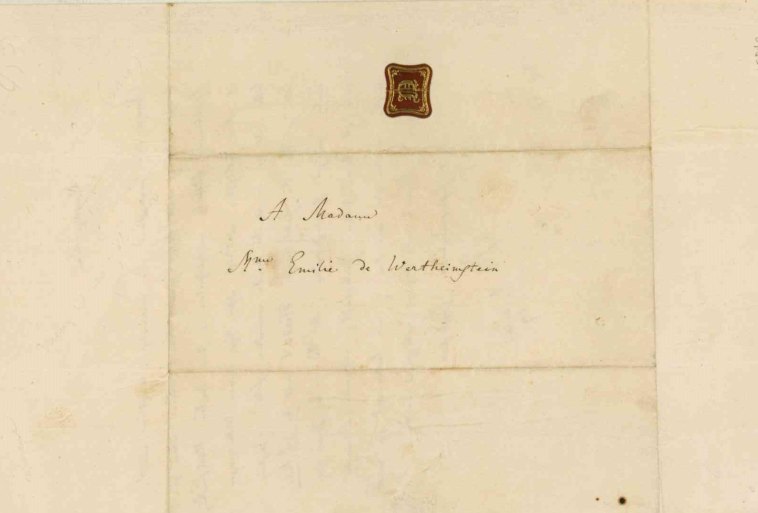 A Madame
Mme Emilie de Wertheimstein